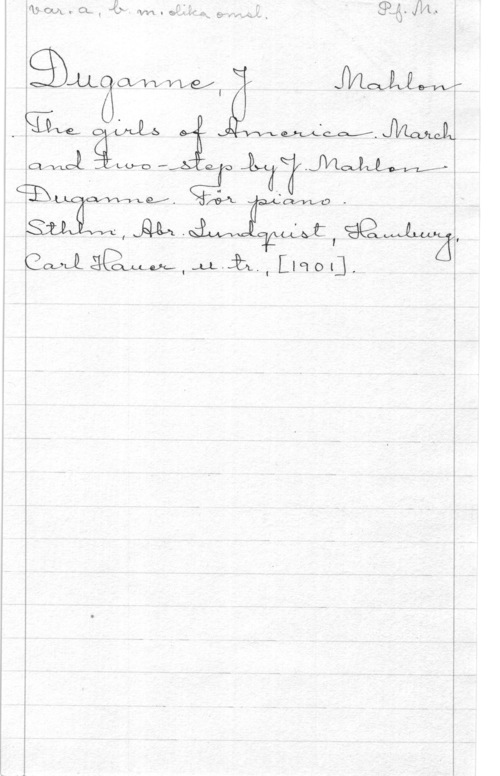 var. a, b m. olika omsl. Pf. M.
Duganne, J Mahlon
The girls of America. March
and two-step by J. Mahlon
Duganne. För piano.
Sthlm, Abr. Lundquist, Hamburg,
Carl Hauer, u. tr., [1901].